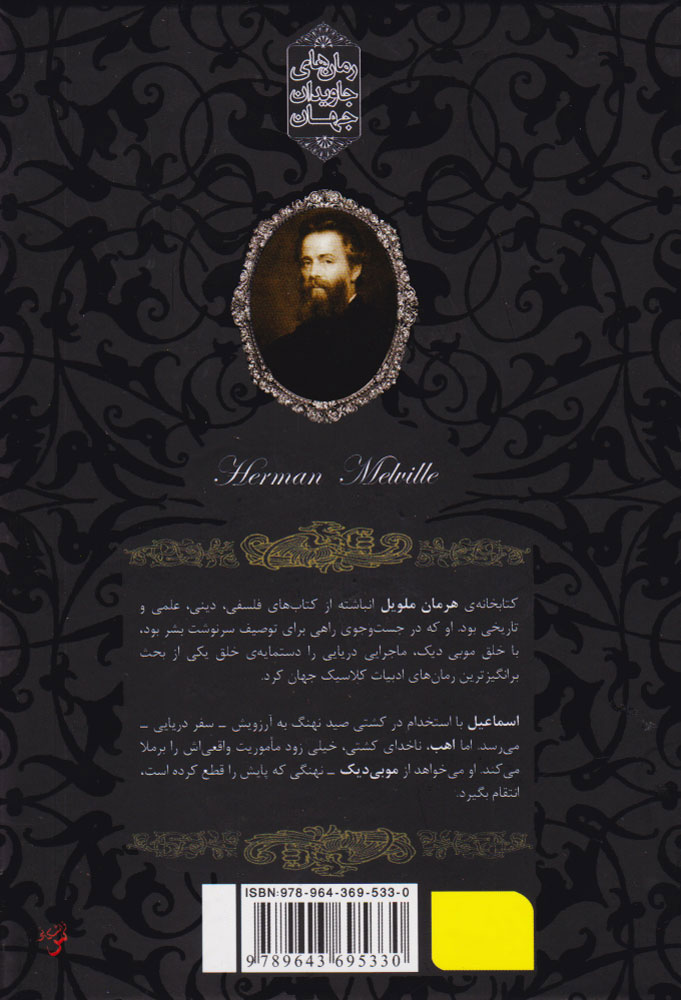 رمان‌های
جاویدان
جهان
Herman Melville
کتابخانه‌ی هرمان ملویل انباشته از کتاب‌های فلسفی، دینی، علمی و
تاریخی بود. او که در جست‌وجوی راهی برای توصیف سرنوشت بشر بود،
با خلق موبی دیک، ماجرایی دریایی را دستمایه‌ی خلق یکی از بحث
برانگیزترین رمان‌های ادبیات کلاسیک جهان کرد.
اسماعیل با استخدام در کشتی صید نهنگ به آرزویش ـ سفر دریایی ـ
می‌رسد. اما اهب، ناخدای کشتی، خیلی زود مأموریت واقعی‌اش را برملا
می‌کند. او می‌خواهد از موبی‌دیک ـ نهنگی که پایش را قطع کرده است،
انتقام بگیرد.
ISBN:978-964-369-533-0
9 789643 695330